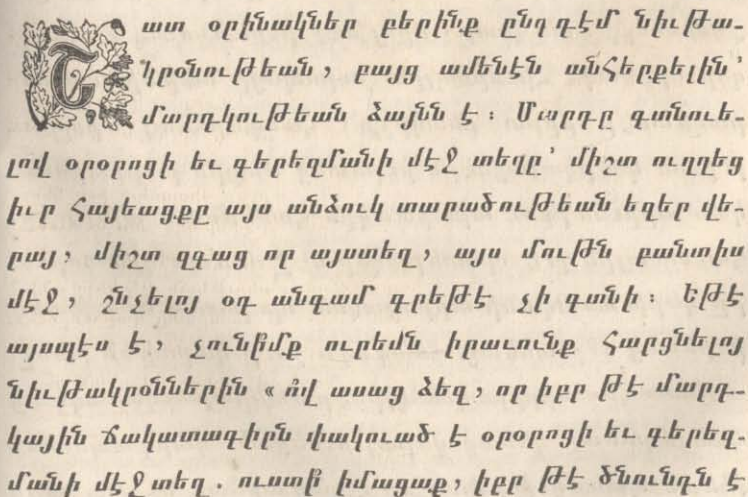 Շատ օրինակներ բերինք ընդդէմ նիւթա-
կրօնութեան, բայց ամենէն անհերքելին՝
մարդկութեան ձայնն է։ Մարդը գտնուե-
լով օրօրոցի եւ գերեզմանի մէջ տեղը՝ միշտ ուղղեց
իւր հայեացքը այս անձուկ տարածութեան եզեր վե-
րայ, միշտ զգաց որ այստեղ, այս մութն բանտիս
մէջ, շնչելոյ օդ անգամ գրեթէ չի գտնի։ Եթէ
այսպէս է, չունի՞մք ուրեմն իրաւունք հարցնելոյ
նիւթակրօններին « ո՞վ ասաց ձեզ, որ իբր թէ մարդ-
կային ճակատագիրն փակուած է օրօրոցի եւ գերեզ-
մանի մէջ տեղ. ուստի՞ իմացաք, իբր թէ ծնունդն է